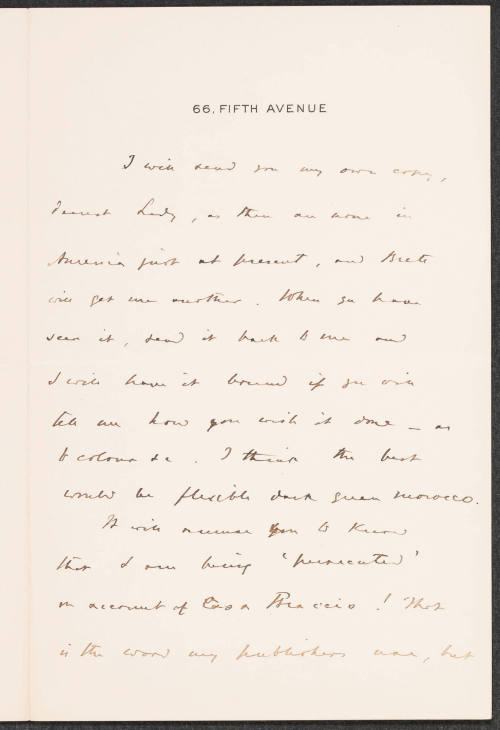 66, FIFTH AVENUE
I will send you my own copy,
dearest Lady, as there are none in
America just at present, and Brett
will get me another. When you have
seen it, send it back to me and
I will have it bound if you will
tell me how you wish it done — as
to colour &c. I think the best
would be flexible dark green morocco.
It will amuse you to know
that I am being 'persecuted'
on account of Casa Braccio! That
is the word my publishers use, but